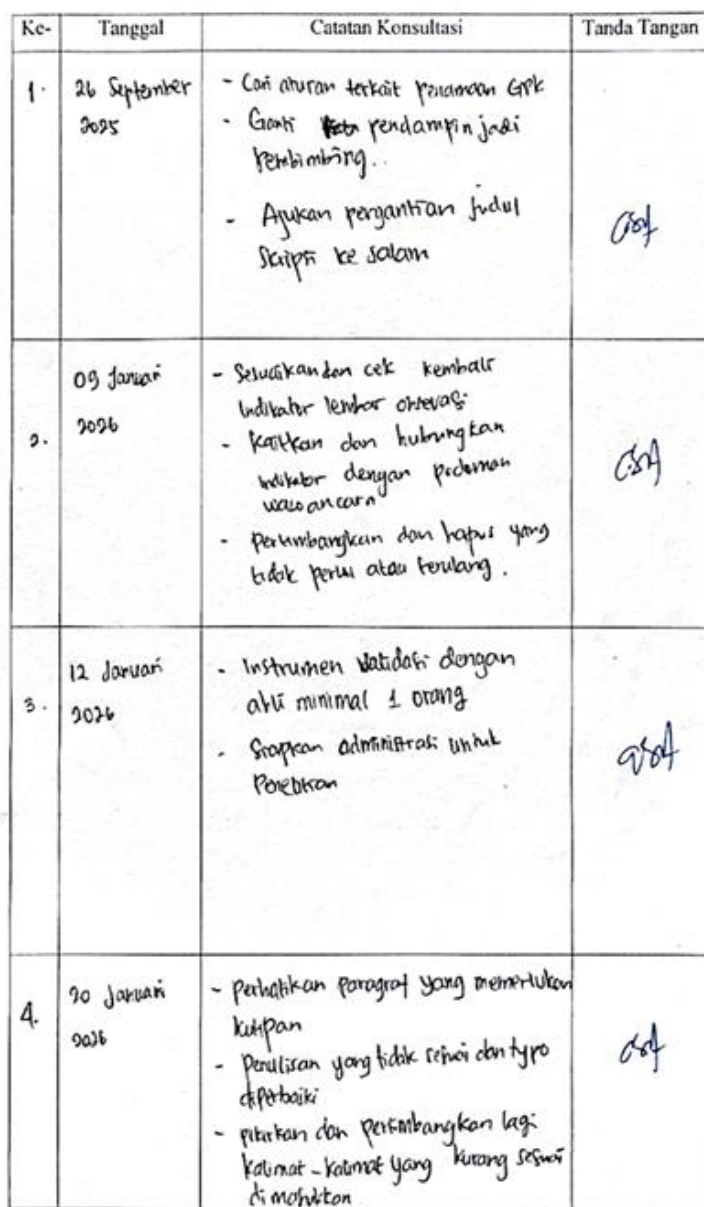 Ke- Tanggal Catatan Konsultasi Tanda Tangan
1. 26 September - Cari aturan terkait penamaan GPK
2025 - Ganti pendampin jadi
Pembimbing..
- Ajukan pergantian judul
Skripsi ke salam
09 Januari - Sesuaikan dan cek kembali
indikator lembar obsevasi
2. 2026 - Kaitkan dan hubungkan
indikator dengan pedoman
wawancara
- Pertimbangkan dan hapus yang
tidak perlu atau terulang.
12 Januari - Instrumen Validasi dengan
3. 2026 ahli minimal 1 orang
- Siapkan administrasi untuk
Penelitian
4. 20 Januari - Perhatikan paragraf yang memerlukan
2026 kutipan
- Penulisan yang tidak sesuai dan typo
diperbaiki
- pikirkan dan pertimbangkan lagi
kalimat-kalimat yang kurang sesuai
di masukkan